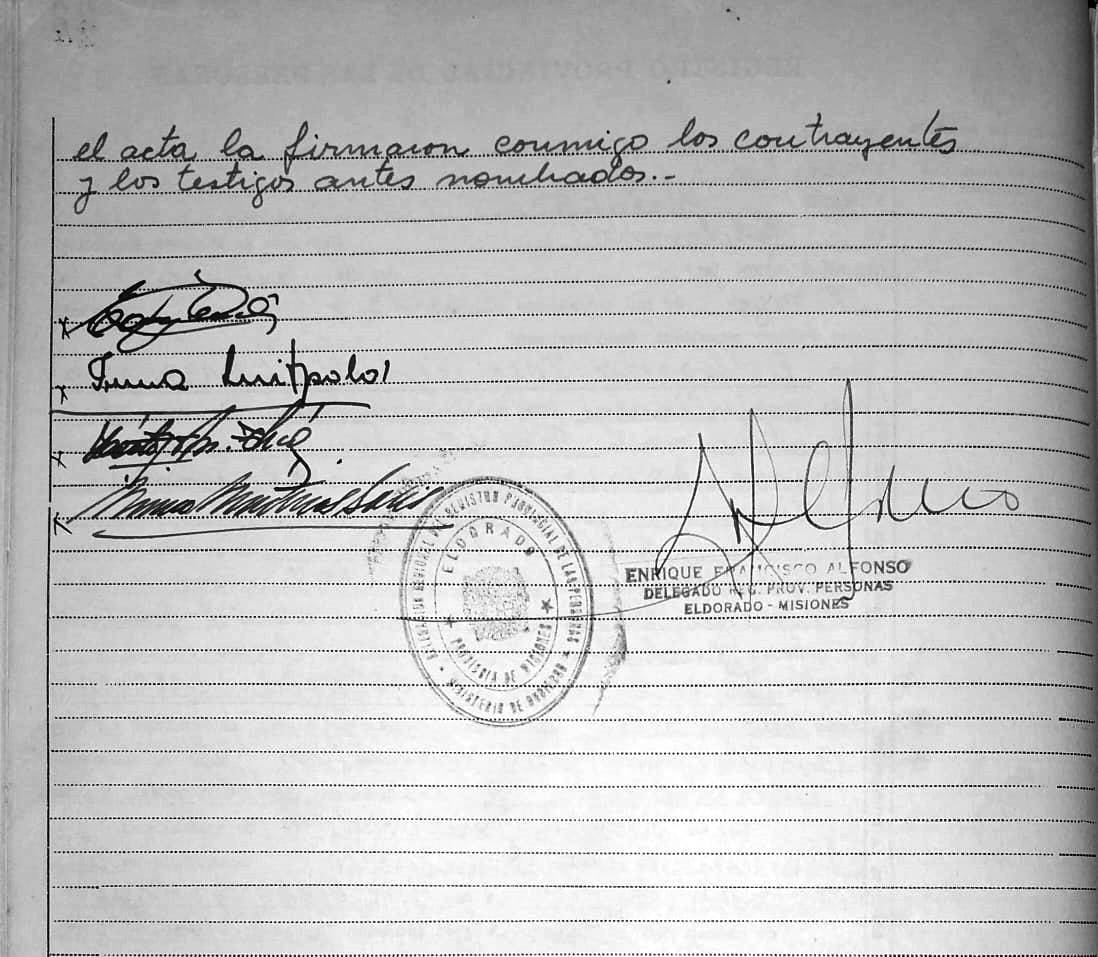 el acta la firmaron conmigo los contrayentes
y los testigos antes nombrados.-
Irma Luitpold
ENRIQUE FRANCISCO ALFONSO
DELEGADO REG. PROV. PERSONAS
ELDORADO - MISIONES
DELEGACION REGIONAL DEL REGISTRO PROVINCIAL DE LAS PERSONAS
ELDORADO
PROVINCIA DE MISIONES
MINISTERIO DE GOBIERNO